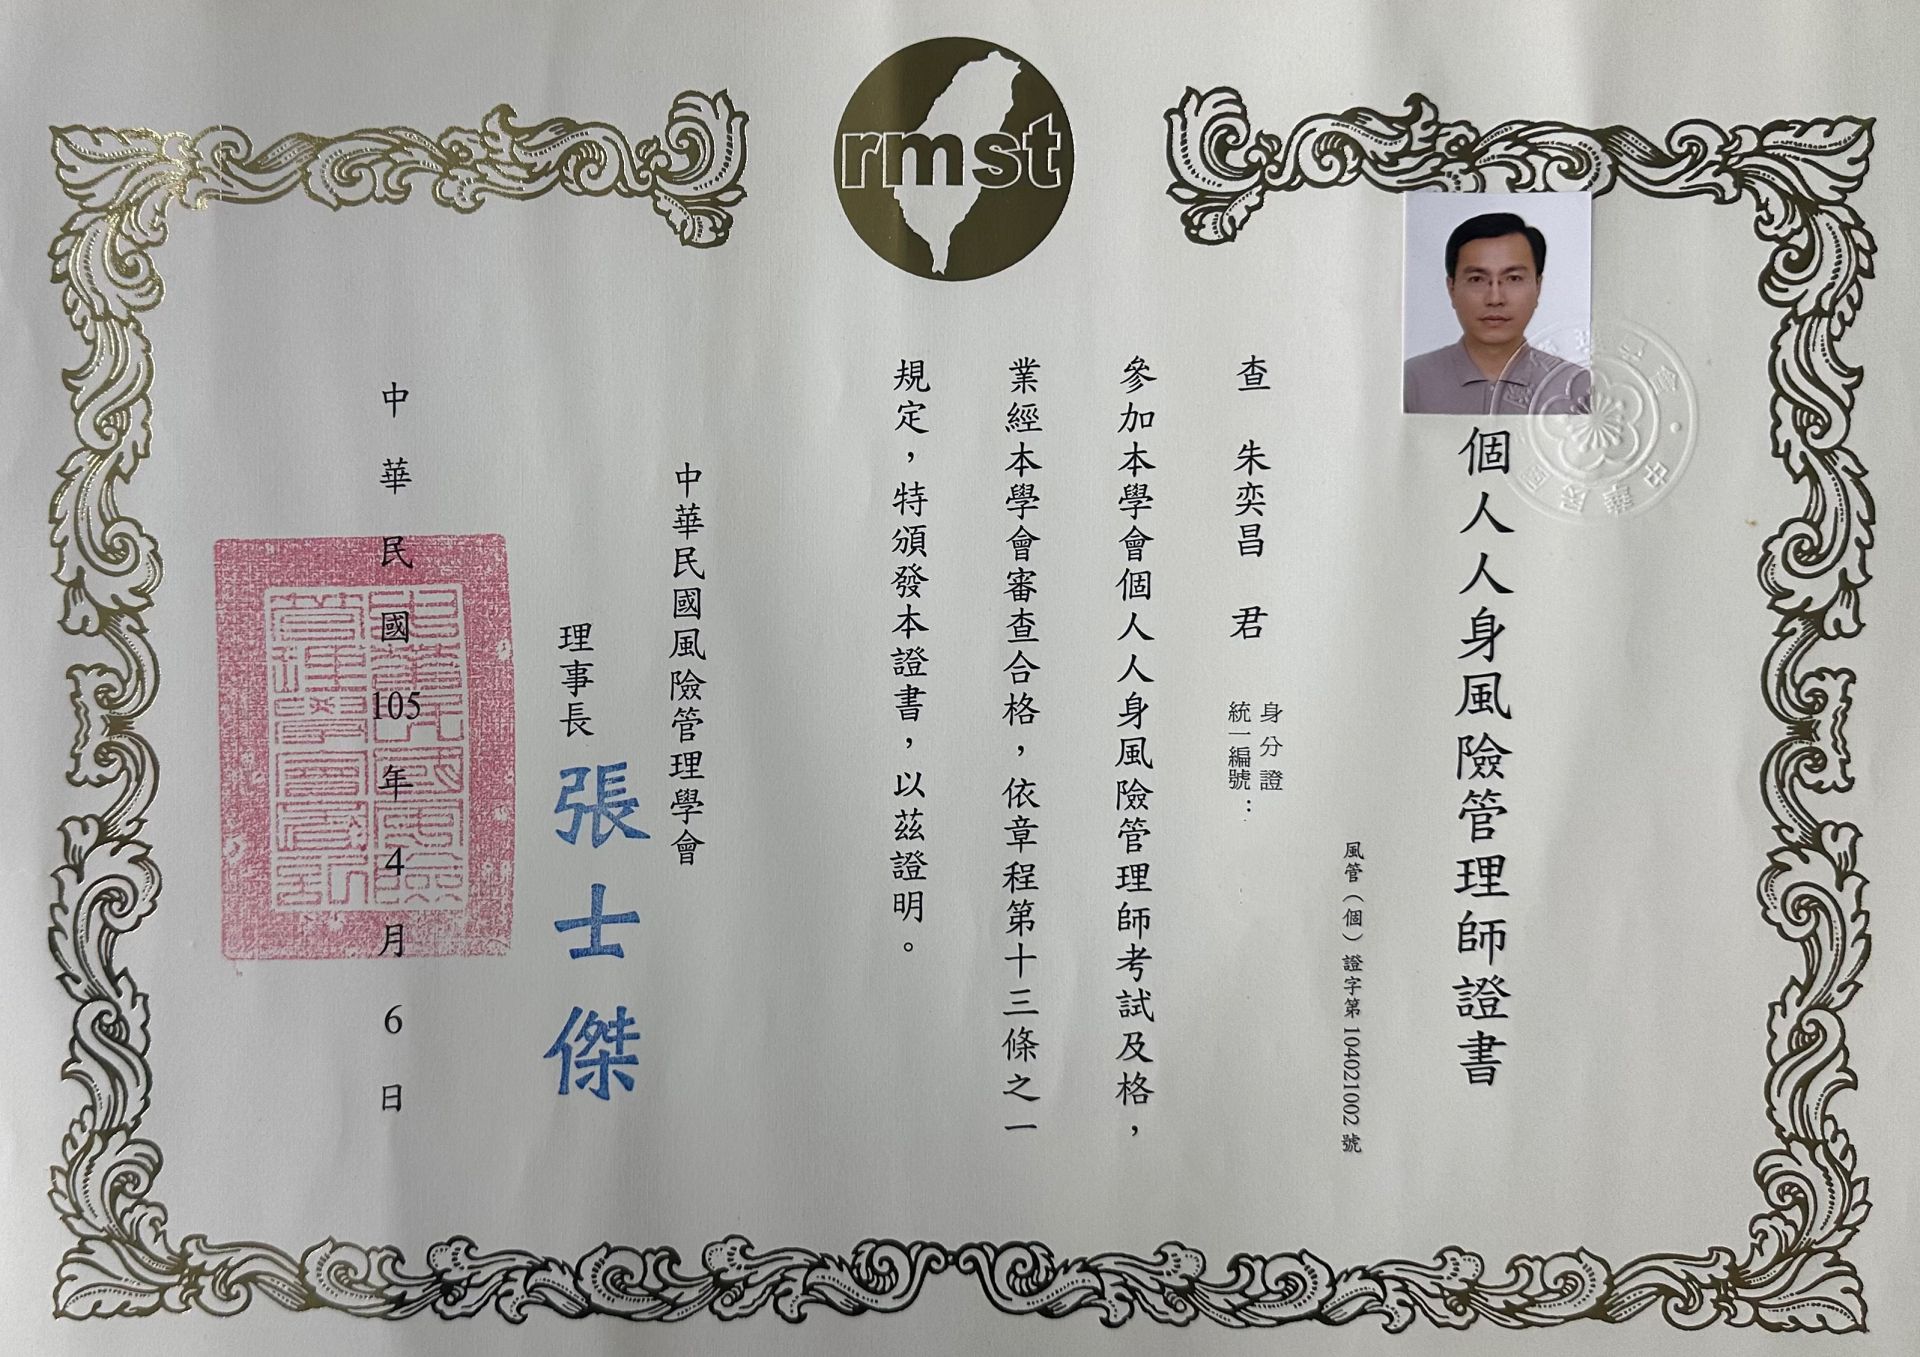 rmst
個人人身風險管理師證書
風管（個）證字第 104021002 號
查　朱奕昌　君　身分證
統一編號：
參加本學會個人人身風險管理師考試及格，
業經本學會審查合格，依章程第十三條之一
規定，特頒發本證書，以茲證明。
中華民國風險管理學會
理事長 張士傑
中華民國 105 年 4 月 6 日